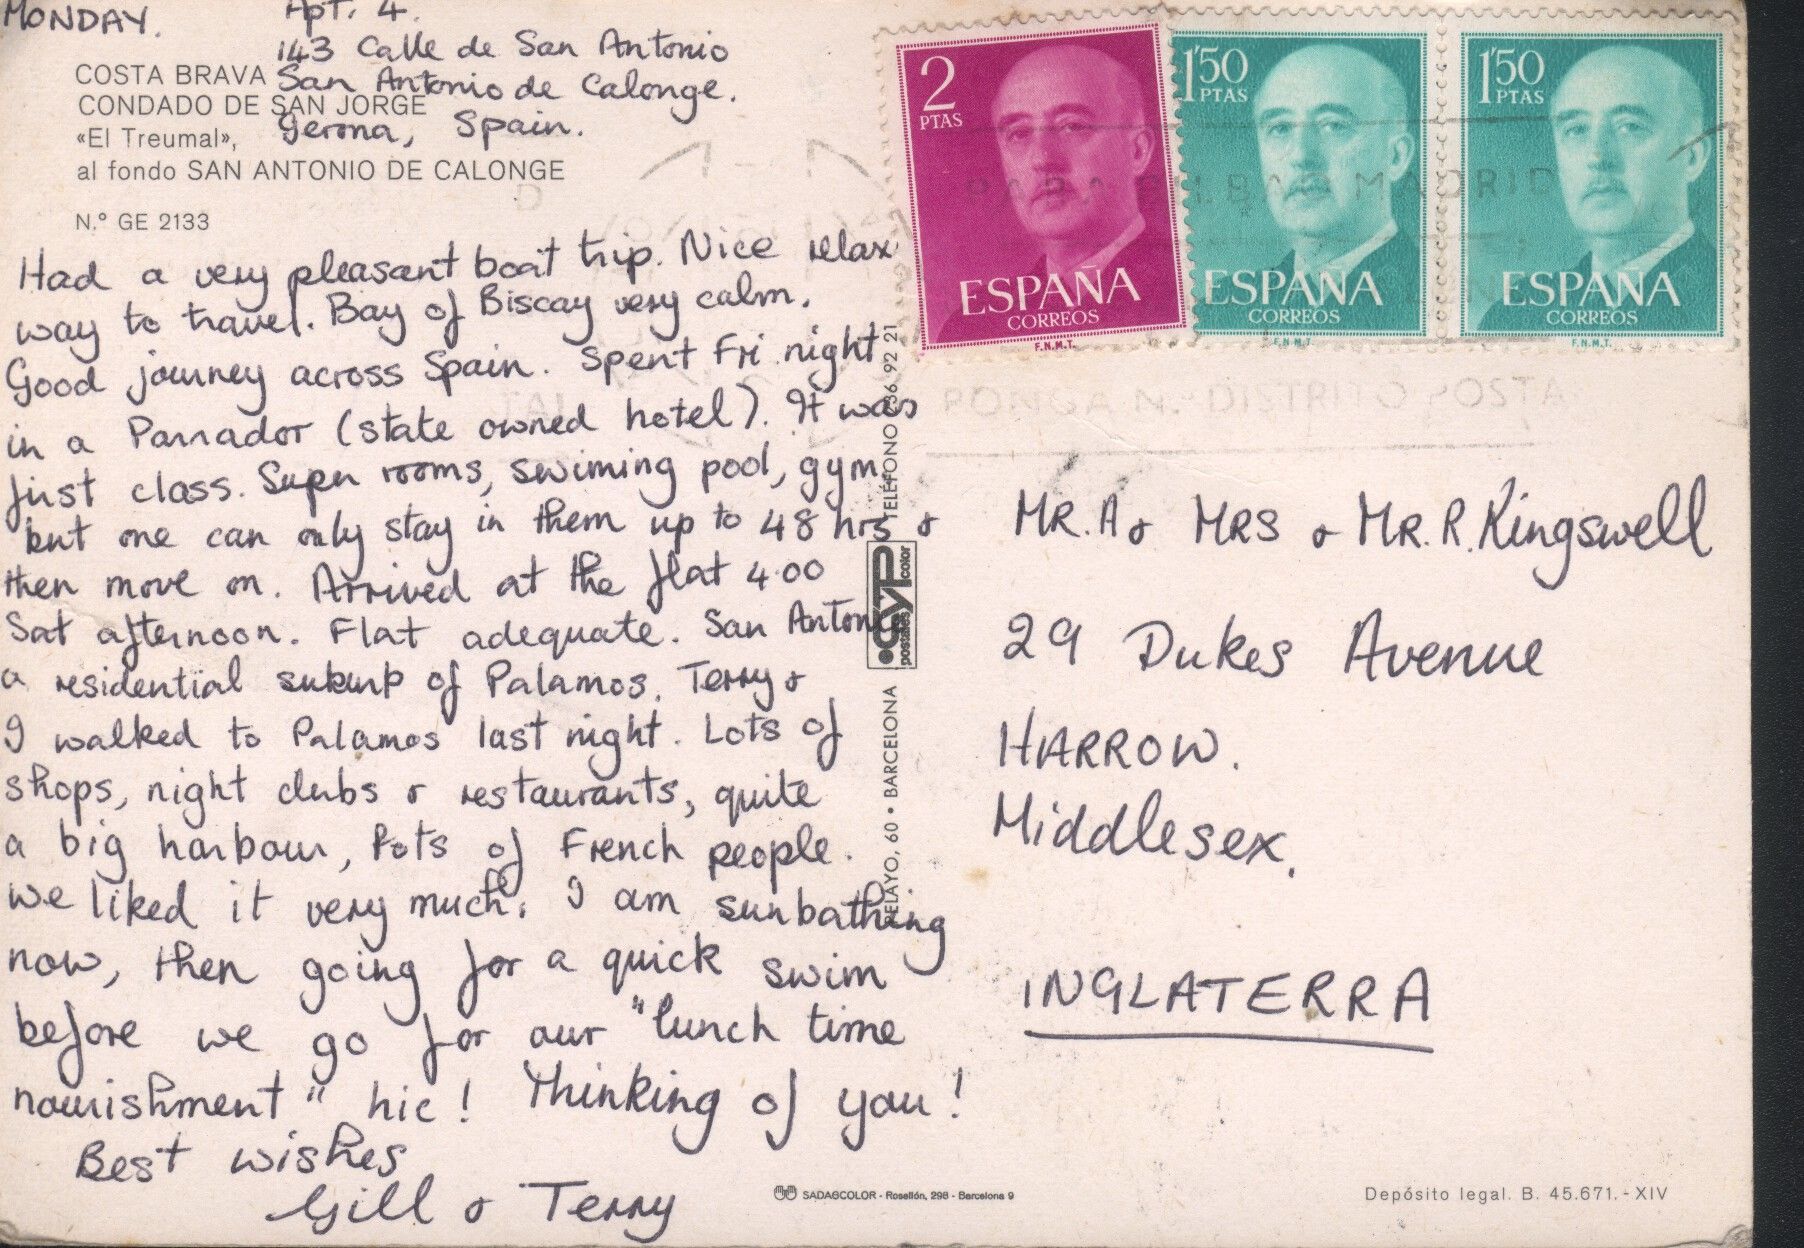 MONDAY.
Apt. 4.
143 Calle de San Antonio
San Antonio de Calonge.
Gerona, Spain.
COSTA BRAVA
CONDADO DE SAN JORGE
«El Treumal»,
al fondo SAN ANTONIO DE CALONGE
N.º GE 2133
Had a very pleasant boat trip. Nice relax
way to travel. Bay of Biscay very calm.
Good journey across Spain. Spent Fri night
in a Parrador (state owned hotel). It was
first class. Super rooms, swiming pool, gym
but one can only stay in them up to 48 hrs &
then move on. Arrived at the flat 4.00
Sat afternoon. Flat adequate. San Antonio
a residential suburb of Palamos. Terry &
I walked to Palamos last night. Lots of
shops, night clubs & restaurants, quite
a big harbour, lots of French people.
we liked it very much. I am sunbathing
now, then going for a quick swim
before we go for our "lunch time
nourishment" hic! Thinking of you!
Best wishes
Gill & Terry
2
PTAS
ESPAÑA
CORREOS
F.N.M.T.
1'50
PTAS
ESPAÑA
CORREOS
F.N.M.T.
1'50
PTAS
ESPAÑA
CORREOS
F.N.M.T.
MADRID
PONGA N.º DISTRITO POSTA
MR. A & MRS & MR. R. Kingswell
29 Dukes Avenue
HARROW.
Middlesex.
INGLATERRA
postales CYP color
PELAYO, 60 • BARCELONA
TELÉFONO 36 92 21
SADAGCOLOR - Rosellón, 298 - Barcelona 9
Depósito legal. B. 45.671.-XIV